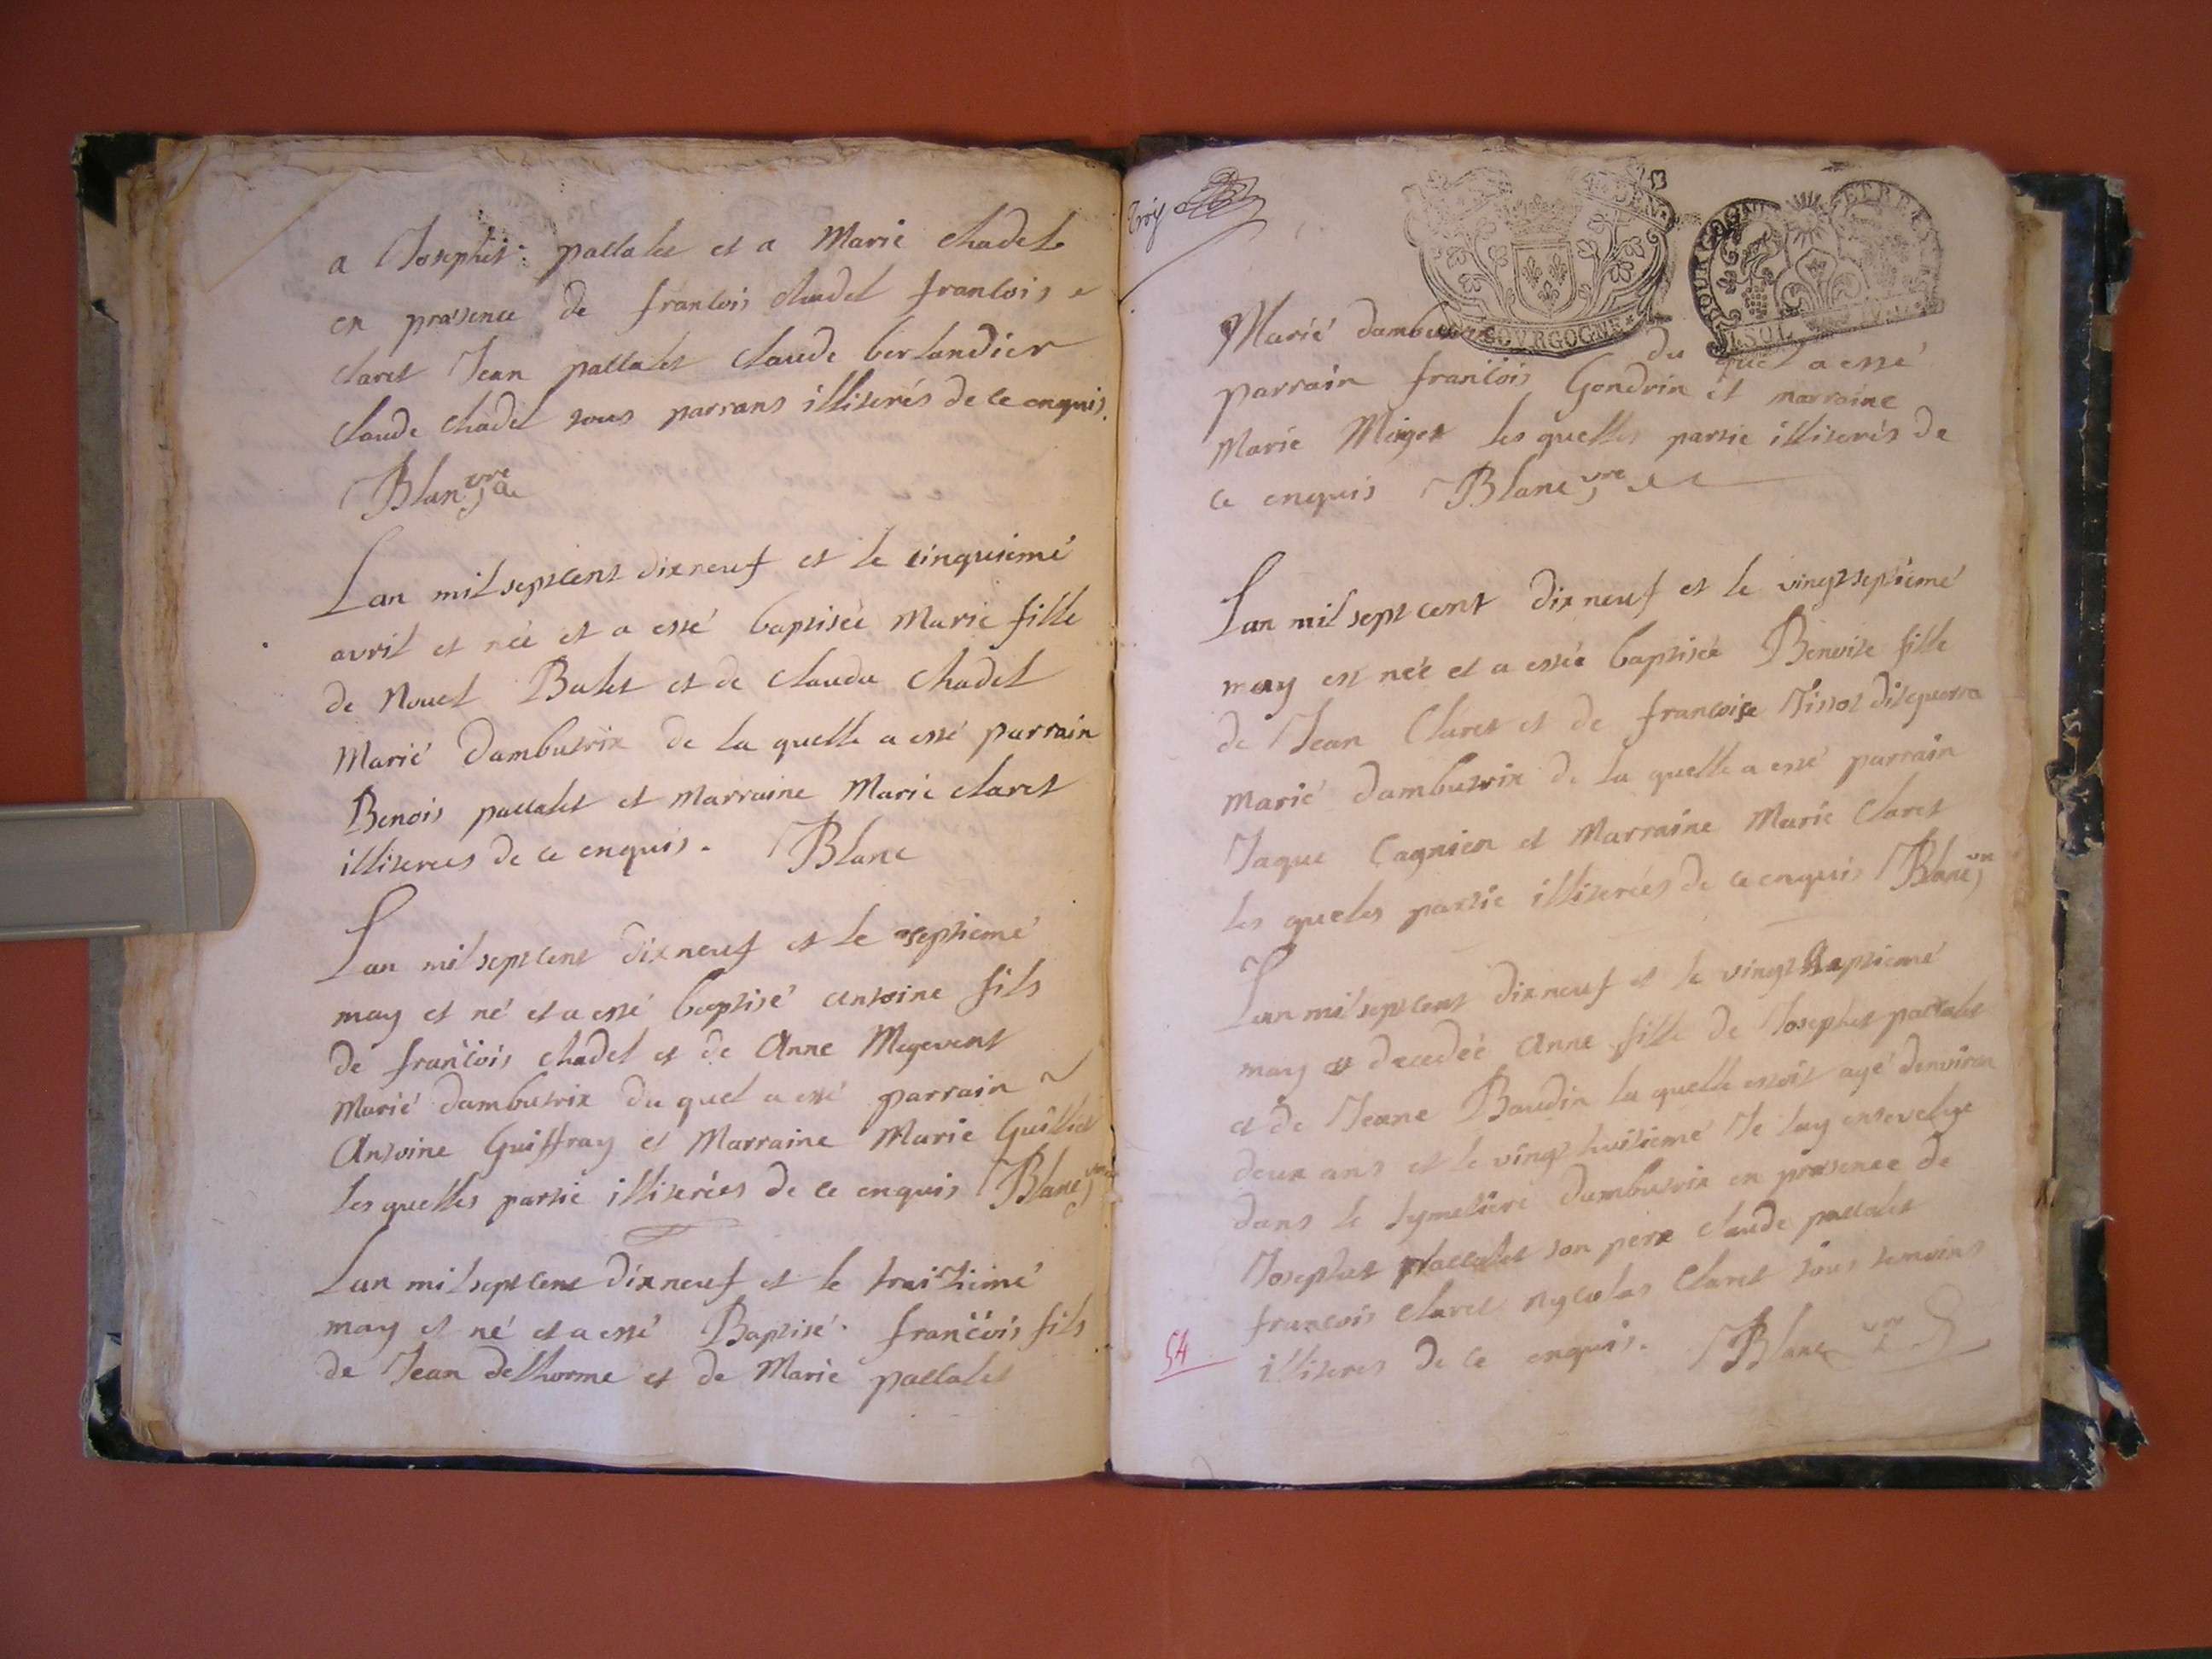 a Josephet pallalet et a Marie chadel
en præsence de francois chadel francois
claret Jean pallalet claude berlandier
claude chadel tous parrans illiterés de ce enquis.
Blanc vre
Lan mil septcent dixneuf et le cinquiemé
avril et née et a esté baptiséé Marie fille
de Nouel Balet et de clauda chadel
Marié dambutrix de la quelle a esté parrain
Benois pallalet et Marraine Marie claret
illiterees de ce enquis. Blanc
Lan mil septcent dixneuf et le septiemé
may et né et a esté baptisé antoine fils
de francois chadel et de Anne Megevent
Marié dambutrix du quel a esté parrain
Antoine Guiffray et Marraine Marie Guillet
les quelles partie illiterées de ce enquis Blanc vre
Lan mil septcent dixneuf et le traitziemé
may et né et a esté Baptisé francois fils
de Jean delhorme et de Marie pallalet
BOVRGOGNE
BOURGOGNE ET BRE
SOL
Marié dambutrix du quel a esté
parrain francois Gondrin et marraine
Marie Miget les quelles partie illiterés de
ce enquis Blanc vre
Lan mil sept cent dix neuf et le vingtseptiemé
may est néé et a estéé baptiséé Benoite fille
de Jean Claret et de francoise Tissot ditquerra
marié dambutrix de la quelle a esté parrain
Jaque Cagnien et Marraine Marie Claret
les queles partie illiterées de ce enquis Blanc vre
Lan mil septcent dixneuf et le vingt septiemé
may et decedéé Anne fille de Josephet pallalet
et de Jeane Baudin la quelle estoit agé denviron
deux ans et le vingt huitiemé Je lay ensevelye
dans le symetiere dambutrix en præsence de
Josephet pallalet son pere claude pallalet
francois claret nycolas Claret tous temoins
illiteres de ce enquis. Blanc vre
54